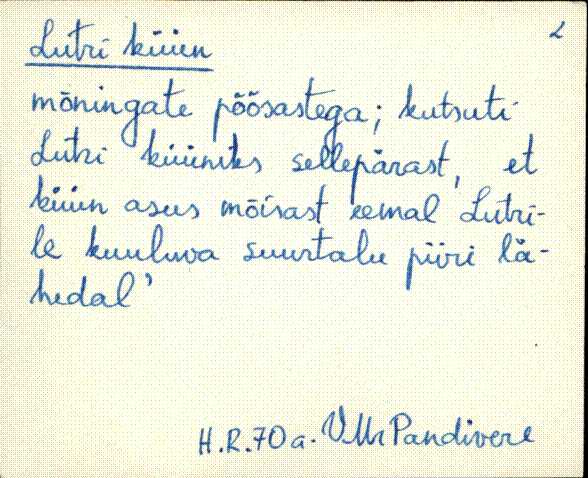 2
Lutri küün
mõningate põõsastega; kutsuti
Lutri küüniks sellepärast, et
küün asus mõisast eemal Lutri-
le kuuluva suurtalu piiri lä-
hedal'
H.R. 70 a. VMr Pandivere